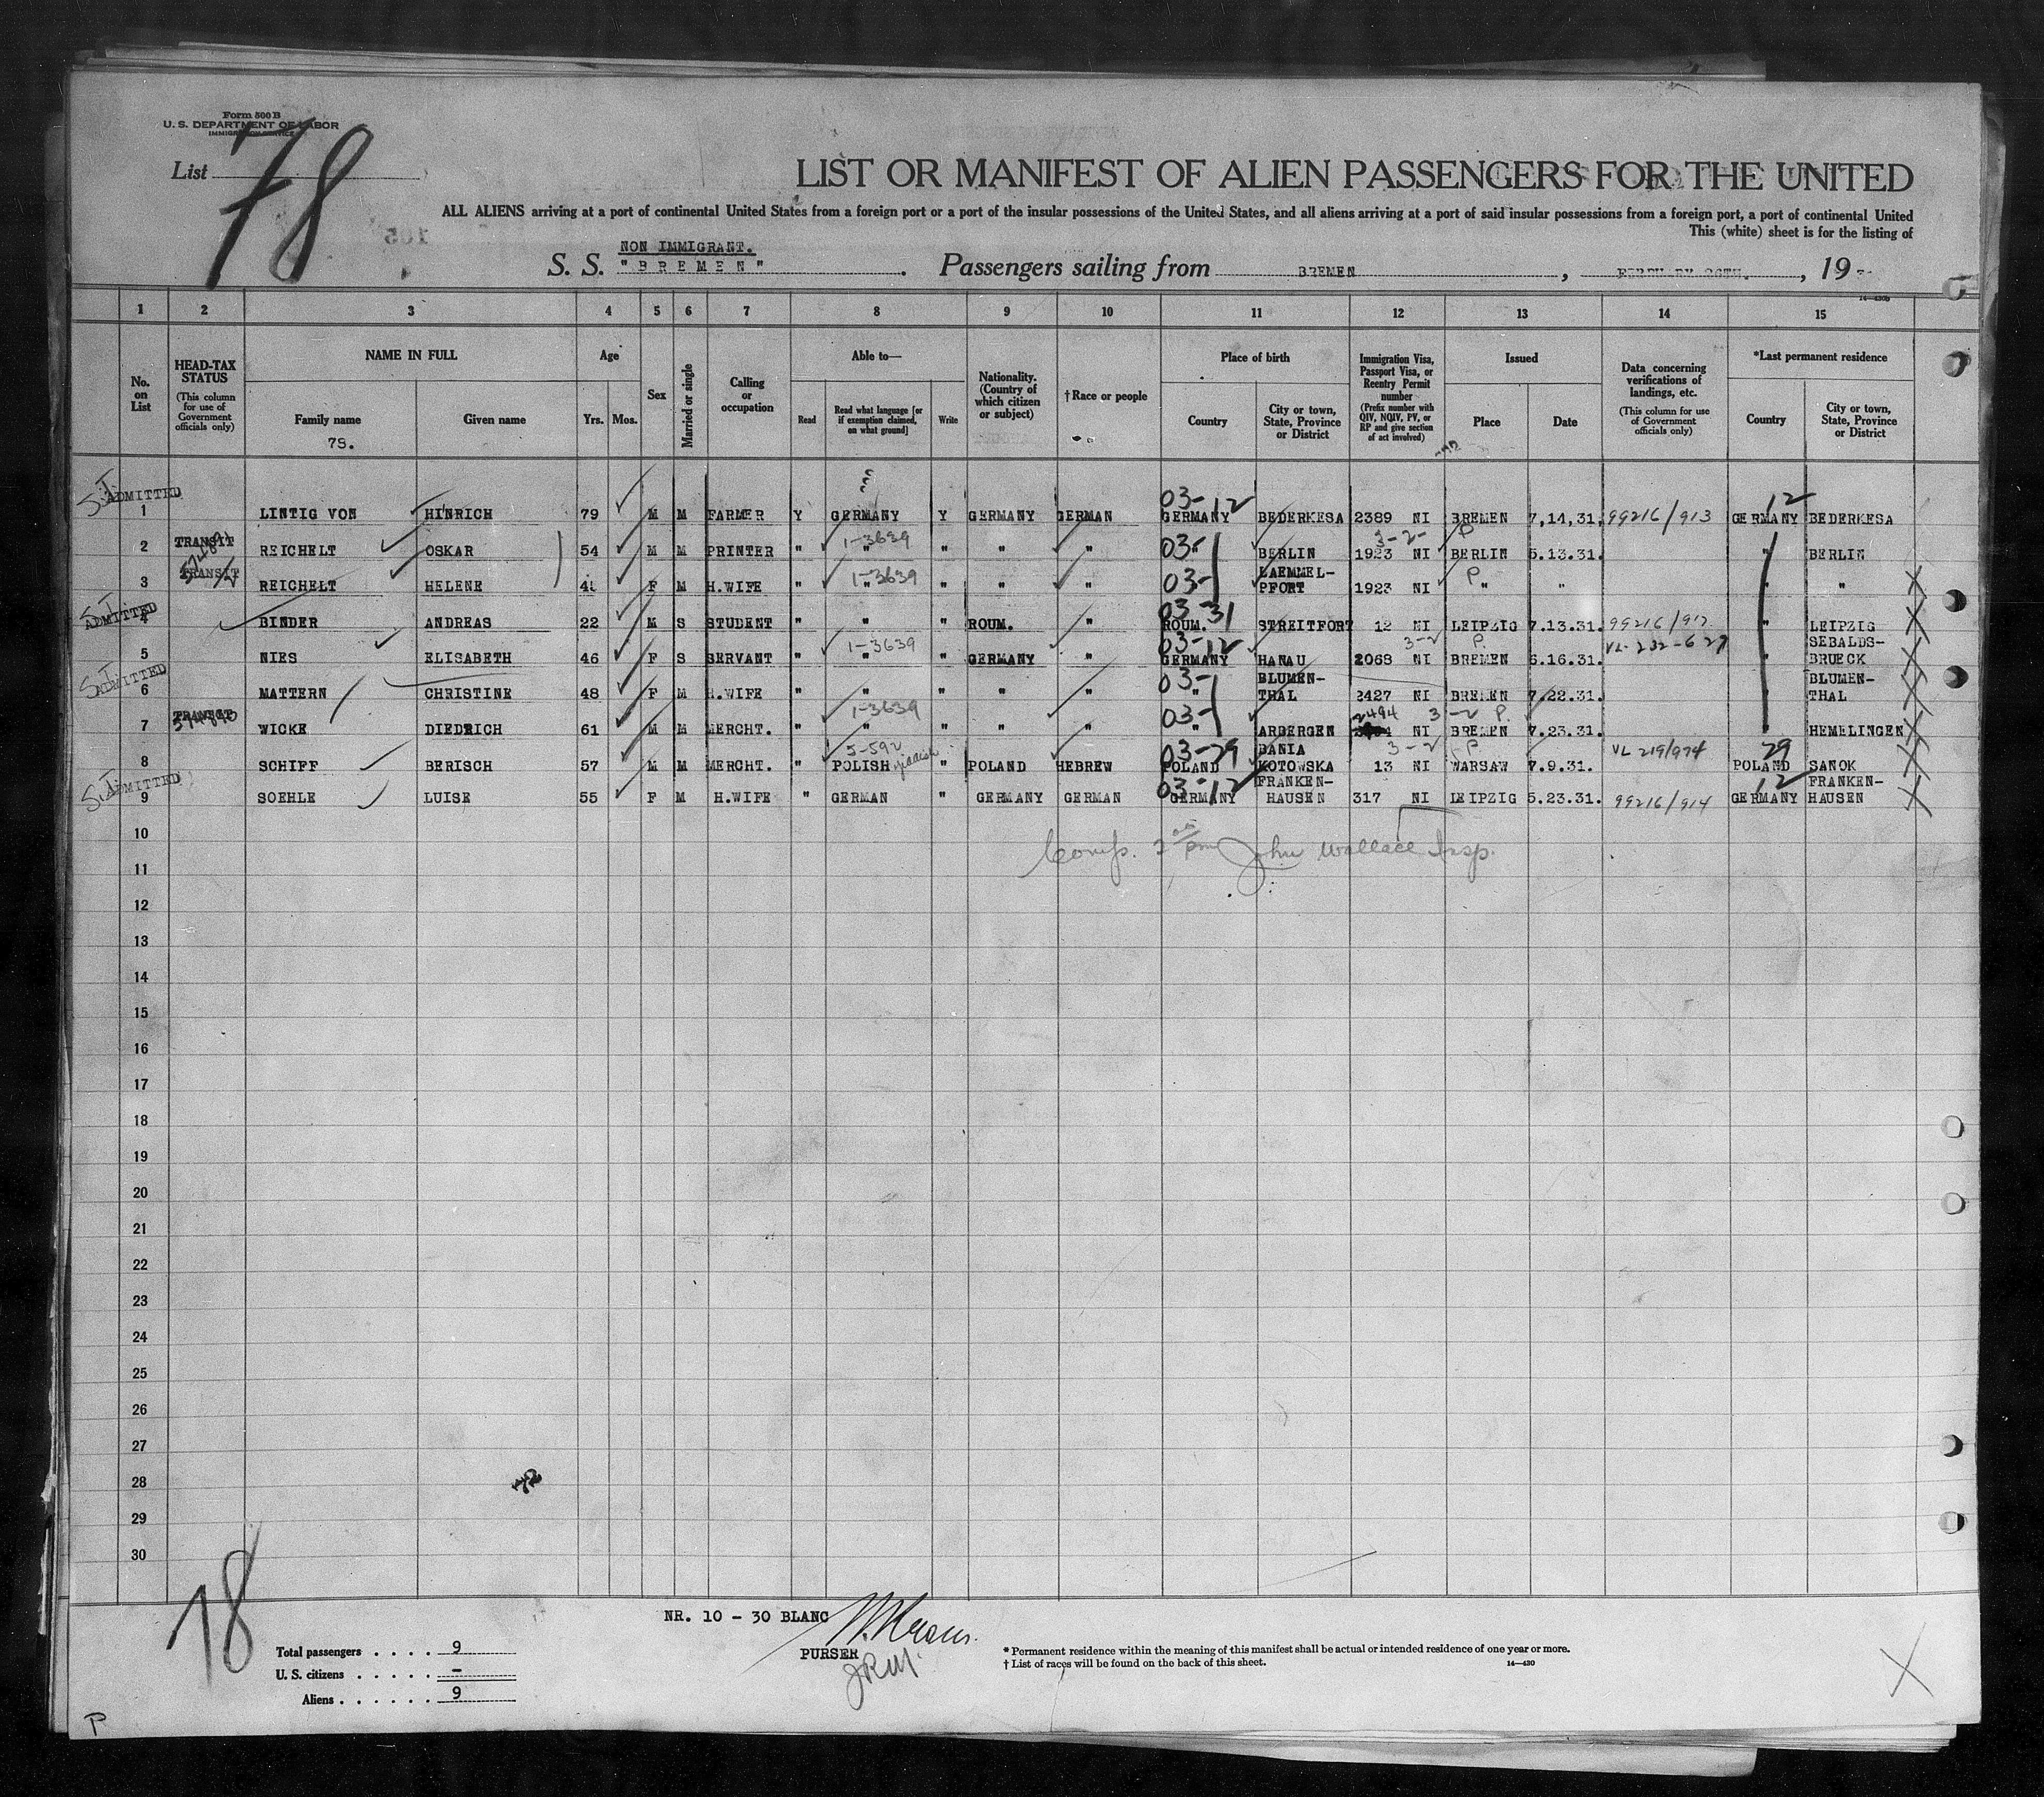 Form 500 B
U. S. DEPARTMENT OF LABOR
IMMIGRATION SERVICE
List 78
LIST OR MANIFEST OF ALIEN PASSENGERS FOR THE UNITED
ALL ALIENS arriving at a port of continental United States from a foreign port or a port of the insular possessions of the United States, and all aliens arriving at a port of said insular possessions from a foreign port, a port of continental United
This (white) sheet is for the listing of
NON IMMIGRANT.
S. S. "BREMEN". Passengers sailing from BREMEN, 19
1 2 3 4 5 6 7 8 9 10 11 12 13 14 15
No. on List
HEAD-TAX STATUS (This column for use of Government officials only)
NAME IN FULL
Family name
Given name
78.
Age
Yrs. Mos.
Sex
Married or single
Calling or occupation
Able to—
Read
Read what language [or if exemption claimed, on what ground]
Write
Nationality. (Country of which citizen or subject)
†Race or people
Place of birth
Country
City or town, State, Province or District
Immigration Visa, Passport Visa, or Reentry Permit number (Prefix number with QIV, NQIV, PV, or RP and give section of act involved)
Issued
Place
Date
Data concerning verifications of landings, etc. (This column for use of Government officials only)
*Last permanent residence
Country
City or town, State, Province or District
S.I. ADMITTED 03-12 12
1 LINTIG VON HINRICH 79 M M FARMER Y GERMANY Y GERMANY GERMAN GERMANY BEDERKESA 2389 NI BREMEN 7,14,31. 99216/913 GERMANY BEDERKESA
TRANSIT 1-3639 03- 3-2- P
2 REICHELT OSKAR 54 M M PRINTER " " " " " " BERLIN 1923 NI BERLIN 5.13.31. " BERLIN
TRANSIT 1-3639 03- LAEMMEL- P
3 REICHELT HELENE F M H.WIFE " " " " " " PFORT 1923 NI " " " "
S.I. ADMITTED 03-31
4 BINDER ANDREAS 22 M S STUDENT " " " ROUM. " ROUM. STREITFORT 12 NI LEIPZIG 7.13.31. " LEIPZIG
1-3639 03-12 3-2 P. VL-232-627 SEBALDS-
5 NIES ELISABETH 46 F S SERVANT " " " GERMANY " GERMANY HANAU 2068 NI BREMEN 6.16.31. " BRUECK
S.I. ADMITTED 03- BLUMEN- BLUMEN-
6 MATTERN CHRISTINE 48 F M H.WIFE " " " " " " THAL 2427 NI BREMEN 7.22.31. " THAL
TRANSIT 1-3639 03- 2494 3-2 P.
7 WICKE DIEDRICH 61 M M MERCHT. " " " " " " ARBERGEN NI BREMEN 7.23.31. " HEMELINGEN
5-592 yiddish 03-29 BANIA 3-2 P VL 219/974 29
8 SCHIFF BERISCH 57 M M MERCHT. " POLISH " POLAND HEBREW POLAND KOTOWSKA 13 NI WARSAW 7.9.31. POLAND SANOK
S.I. ADMITTED 03-12 FRANKEN- 12 FRANKEN-
9 SOEHLE LUISE 55 F M H.WIFE " GERMAN " GERMANY GERMAN GERMANY HAUSEN 317 NI LEIPZIG 5.23.31. 99216/914 GERMANY HAUSEN
10
John Wallace Insp.
11
12
13
14
15
16
17
18
19
20
21
22
23
24
25
26
27
28
29
30
78
NR. 10 - 30 BLANC
PURSER
J.R.M.
Total passengers . . . . 9
U. S. citizens . . . . . –
Aliens . . . . . . 9
* Permanent residence within the meaning of this manifest shall be actual or intended residence of one year or more.
† List of races will be found on the back of this sheet.
14—430
P